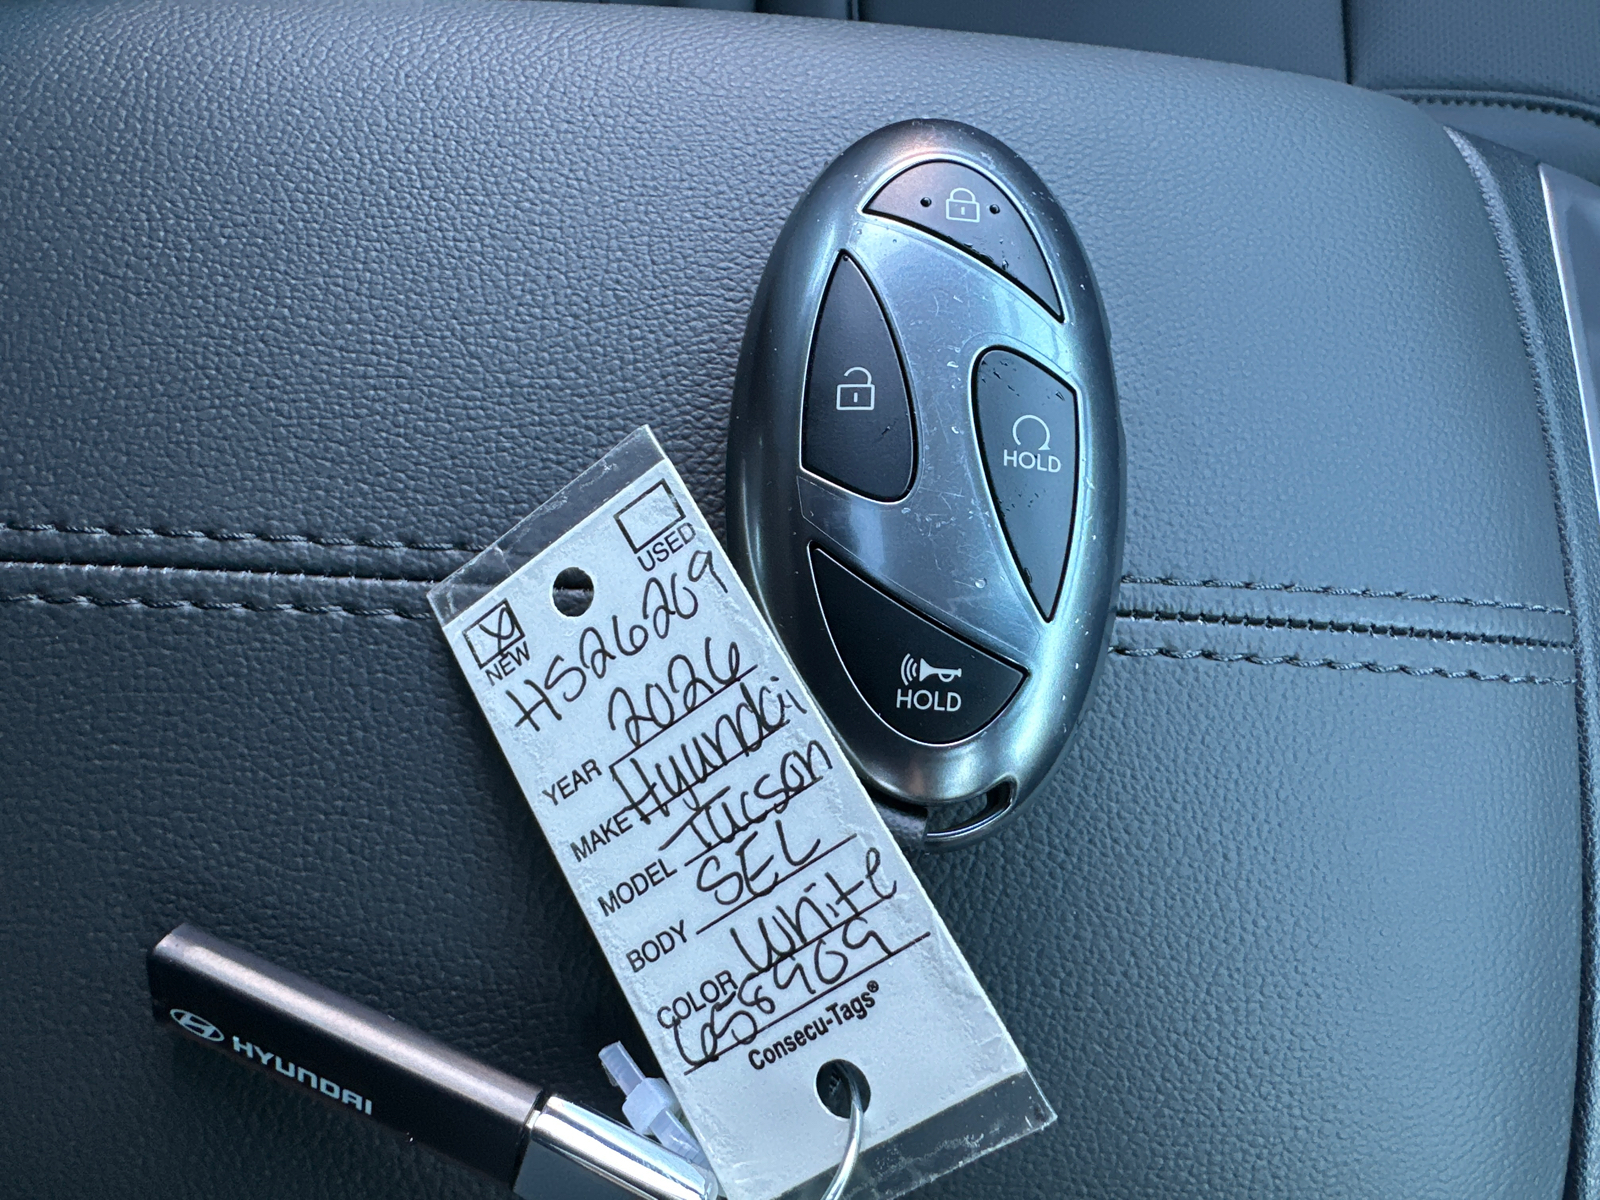 HOLD
HOLD
USED
NEW
HS26269
YEAR 2026
MAKE Hyundai
MODEL Tucson
BODY SEL
COLOR White
Consecu-Tags®
HYUNDAI